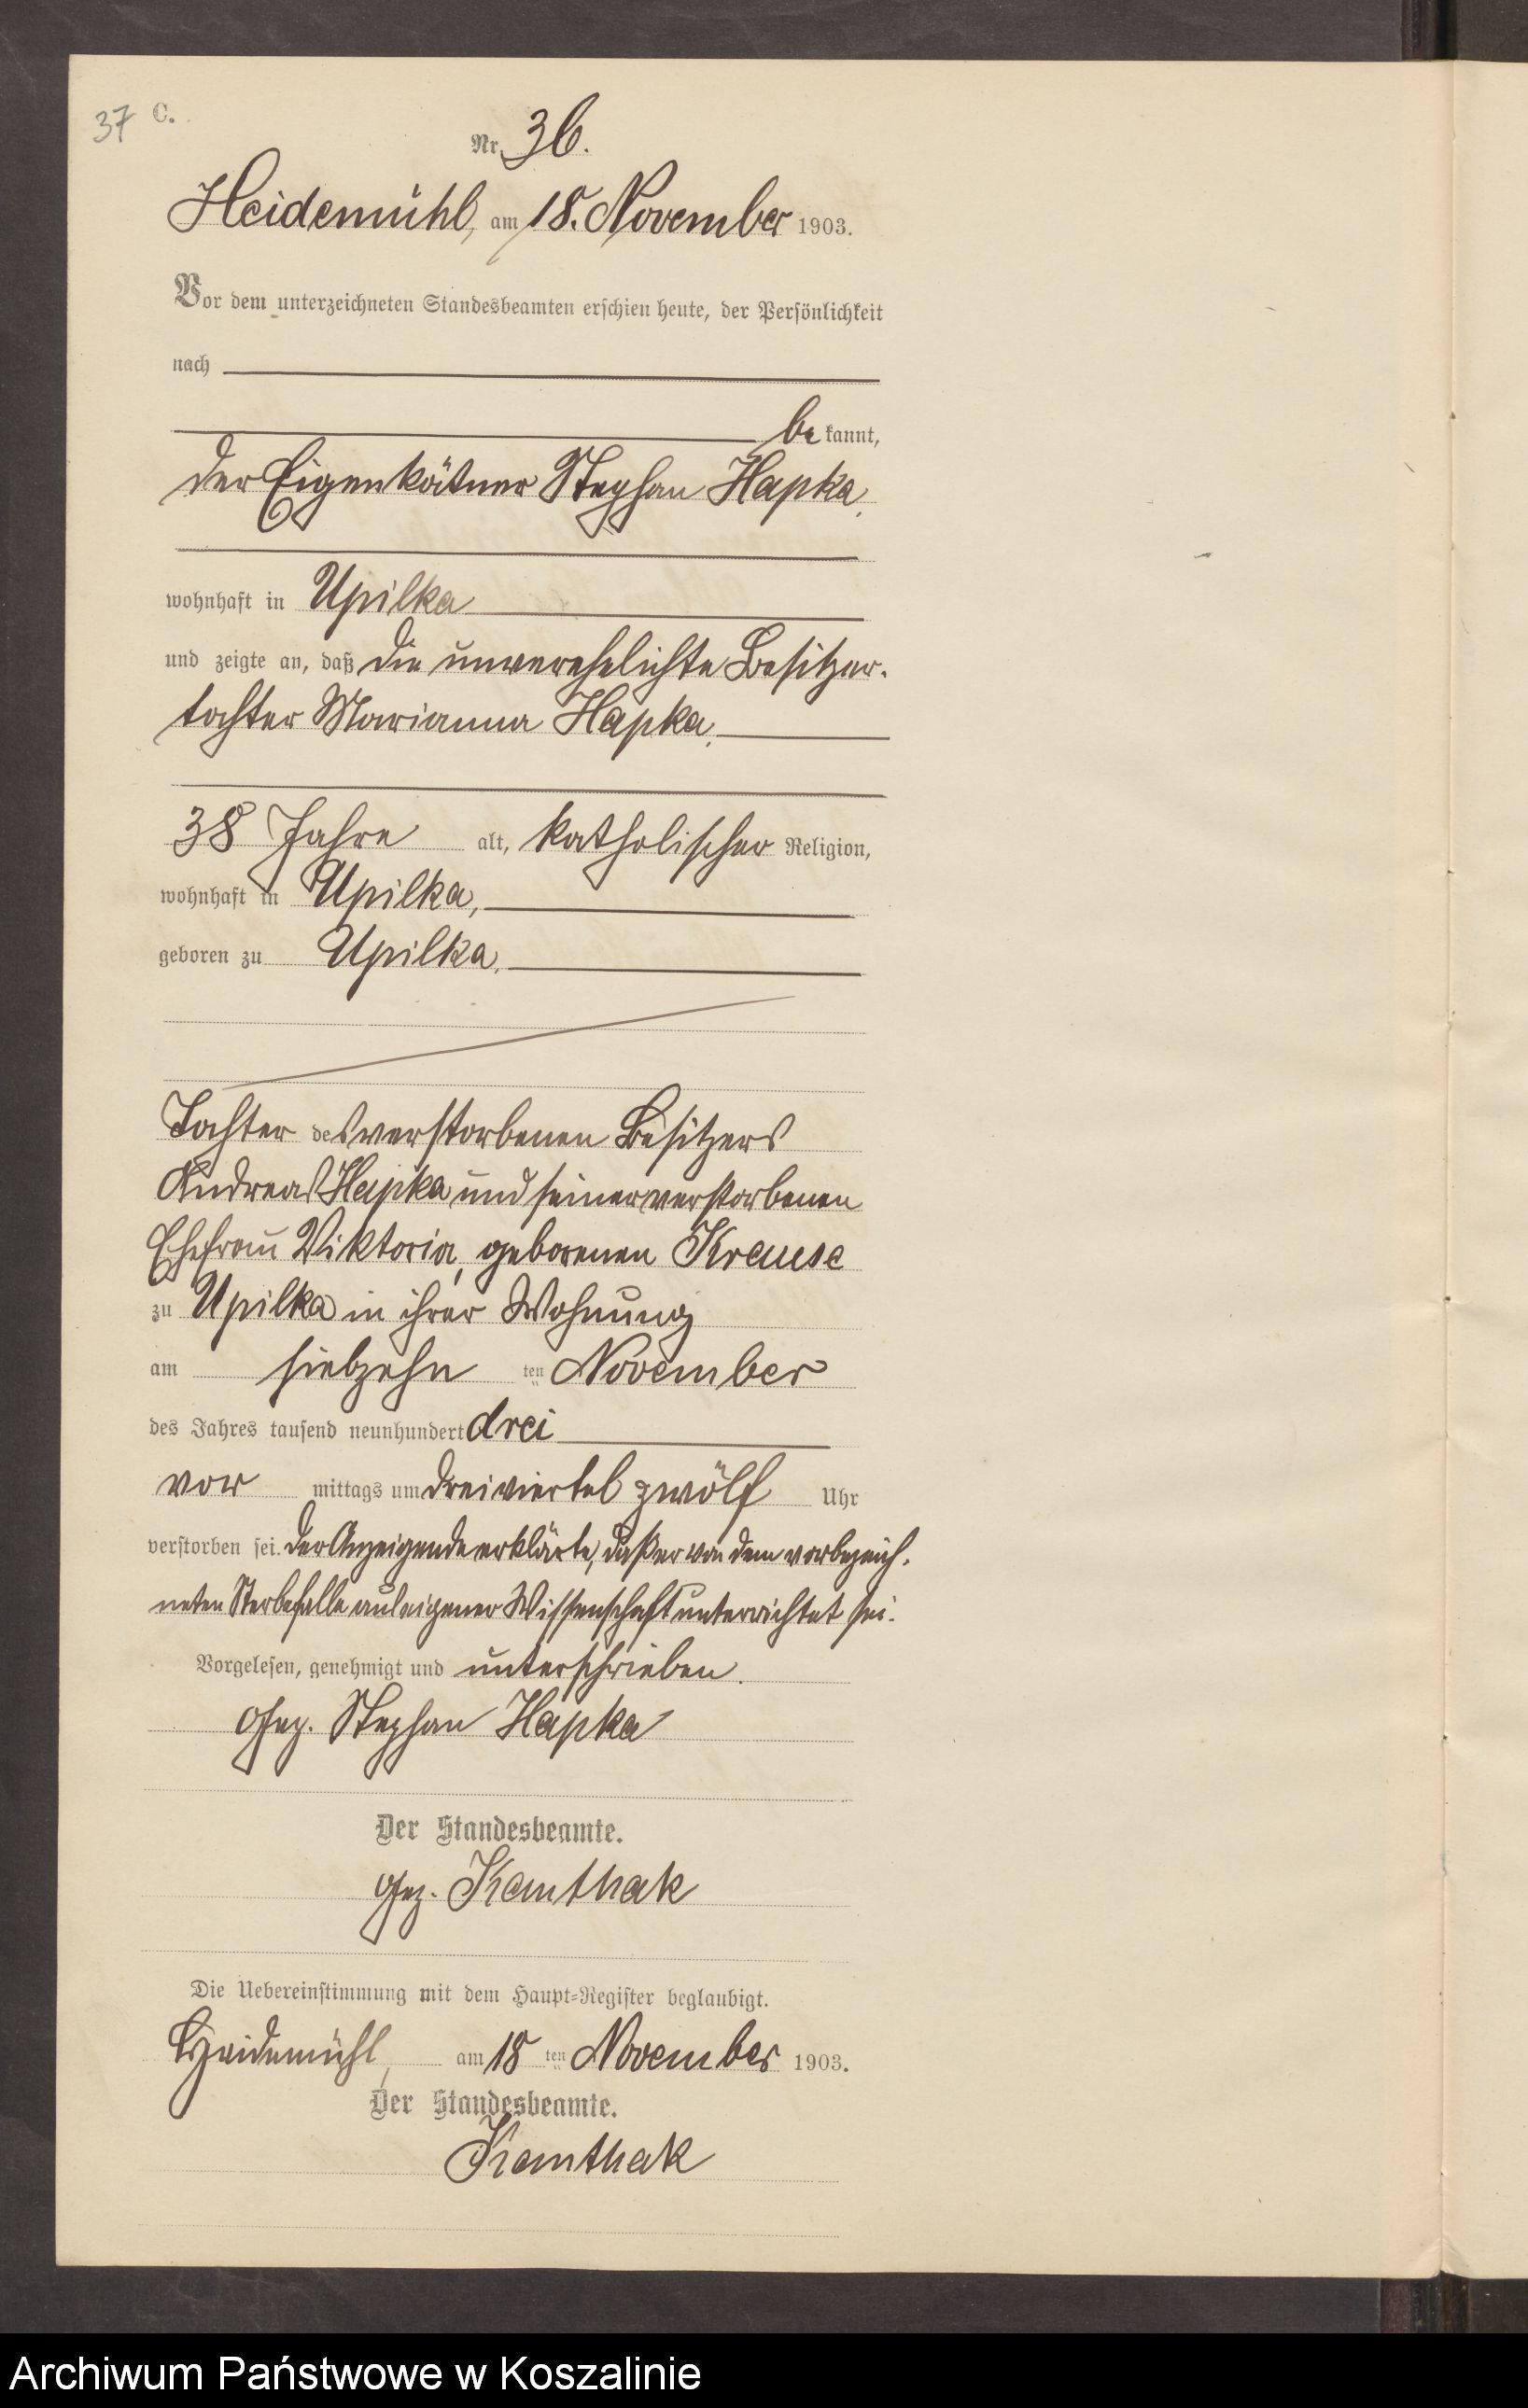 37
C.
Nr. 36.
Heidemühl, am 18. November 1903.
Vor dem unterzeichneten Standesbeamten erschien heute, der Persönlichkeit
nach
bekannt,
der Eigenkätner Stephan Hapka,
wohnhaft in Upilka
und zeigte an, daß die unverehelichte Besitzer-
tochter Marianna Hapka,
38 Jahre alt, katholischer Religion,
wohnhaft in Upilka,
geboren zu Upilka,
Tochter des verstorbenen Besitzers
Andreas Hapka und seiner verstorbenen
Ehefrau Viktoria, geborenen Krause
zu Upilka in ihrer Wohnung
am siebzehn ten November
des Jahres tausend neunhundert drei
vor mittags um dreiviertel zwölf Uhr
verstorben sei. Der Anzeigende erklärte, daß er von dem vorbezeich-
neten Sterbefalle aus eigener Wissenschaft unterrichtet sei.
Vorgelesen, genehmigt und unterschrieben.
Gez. Stephan Hapka
Der Standesbeamte.
Gez. Kemthak
Die Uebereinstimmung mit dem Haupt-Register beglaubigt.
Heidemühl, am 18 ten November 1903.
Der Standesbeamte.
Kemthak
Archiwum Państwowe w Koszalinie